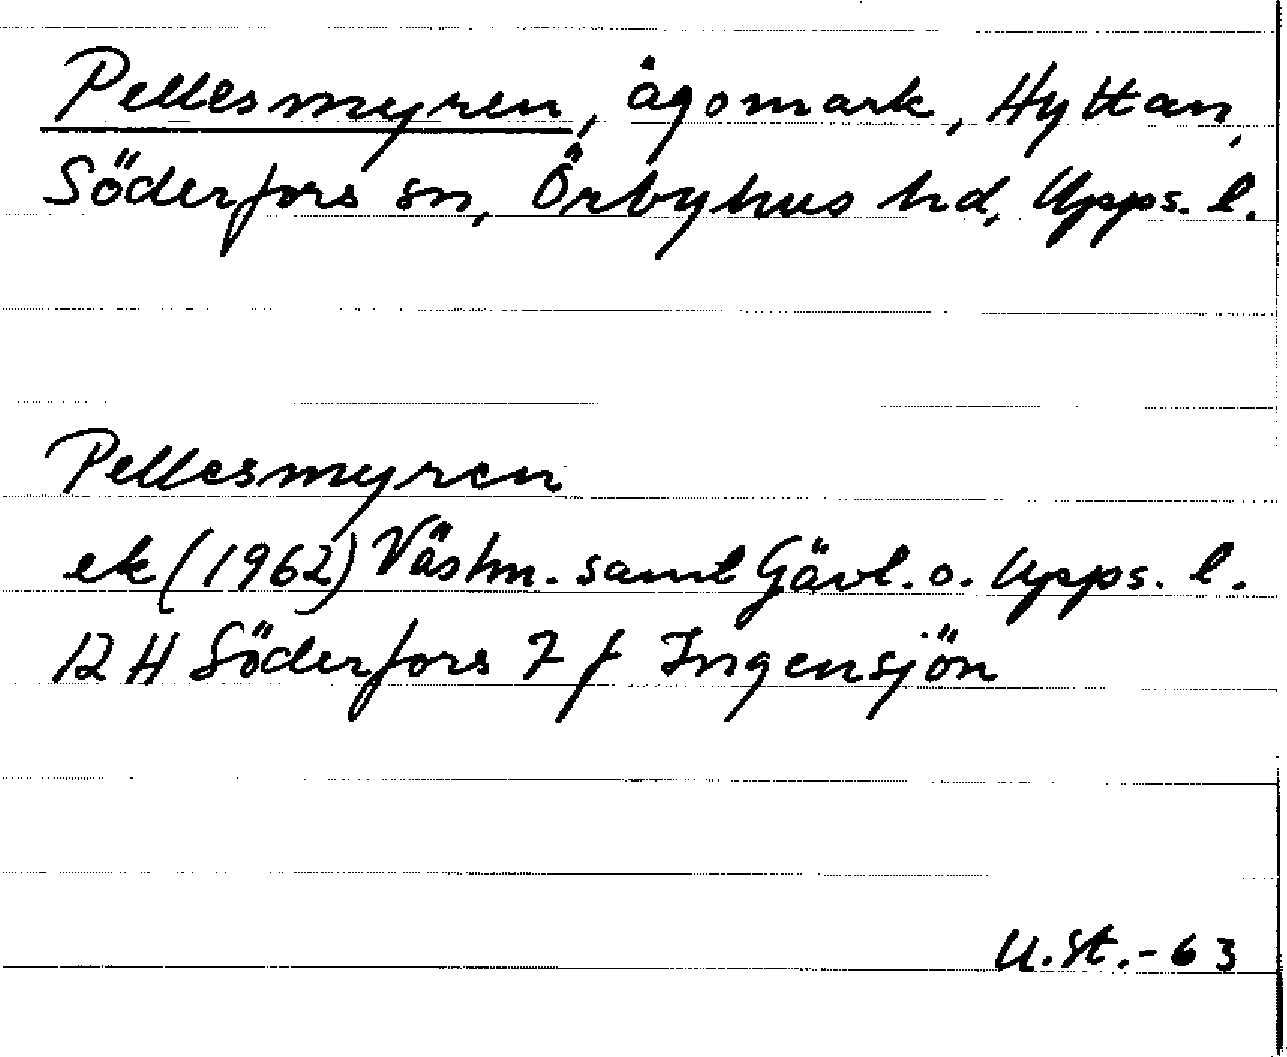 Pellesmyren, ägomark, Hyttan,
Söderfors sn, Örbyhus hd, Upps. l.
Pellesmyren
ek (1962) Västm. samt Gävl. o. Upps. l.
12 H Söderfors 7 f Ingensjön
U.St.-63